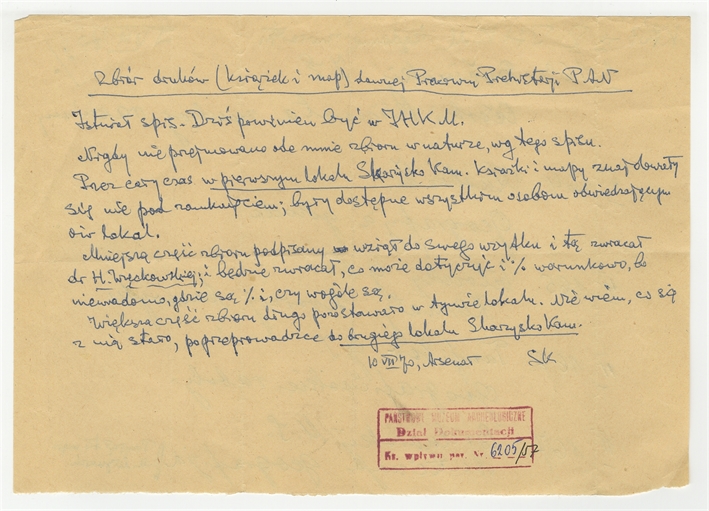 Zbiór druków (książek i map) dawnej Pracowni Prehistorji PAN
Istniał spis. Dziś powinien być w IHKM.
Nigdy nie przejmowano ode mnie zbioru w naturze, wg tego spisu.
Przez cały czas w pierwszym lokalu Skarżysko Kam. książki i mapy znajdowały
się nie pod zamknięciem; były dostępne wszystkim osobom odwiedzającym
ów lokal.
Mniejszą część zbioru podpisany wziął do swego użytku i tę zwracał
dr H. Więckowskiej; i będzie zwracał, co może dotyczyć i % warunkowo, bo
niewiadomo, gdzie są % i, czy wogóle są.
Większa część zbioru długo pozostawała w tymże lokalu. Nie wiem, co się
z nią stało, po przeprowadzce do drugiego lokalu Skarżysko Kam.
10 VII 70, Arsenał SK
PAŃSTWOWE MUZEUM ARCHEOLOGICZNE
Dział Dokumentacji
Ks. wpływu poz. Nr. 6205/57